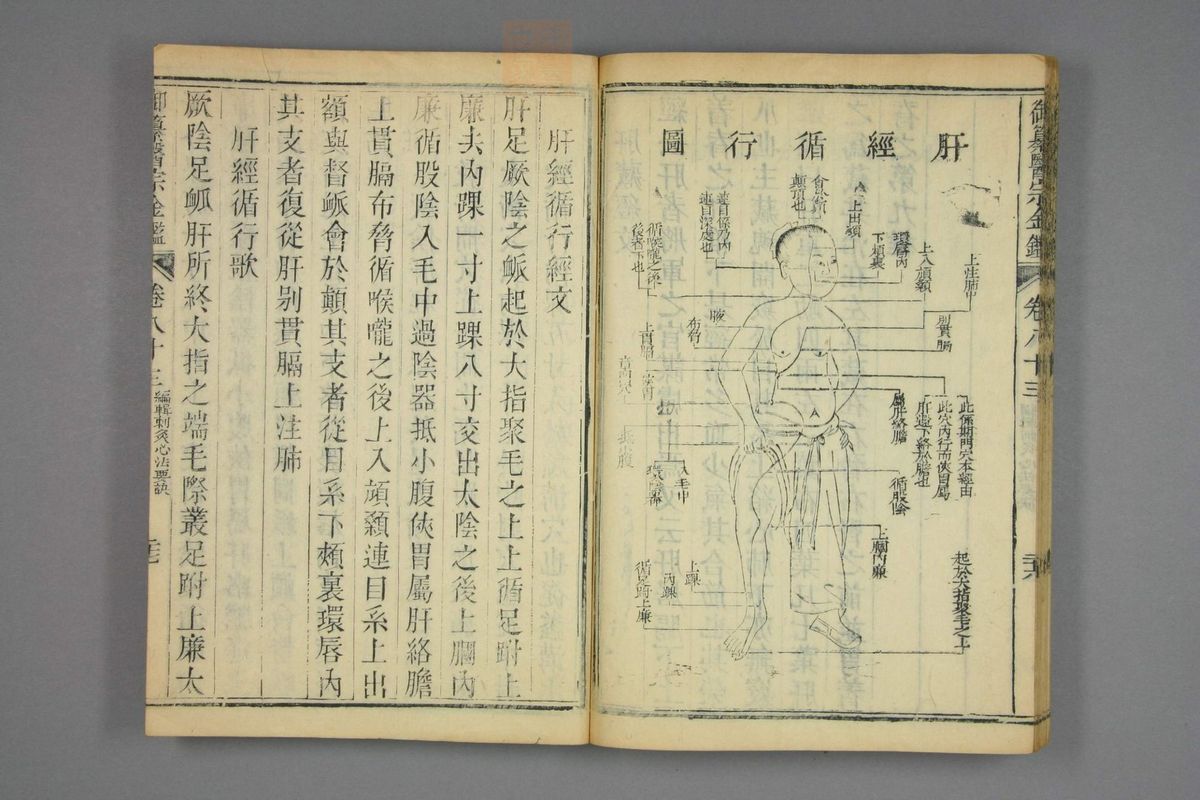 御纂醫宗金鑑
卷八十三
肝經循行圖
上出額
會於
巔頂也
連目系乃內
連目深處也
循喉嚨之後
環唇內
下頰裏
上入頏顙
上注肺中
別貫膈
腋
布脅
上貫膈
章門穴
屬肝絡膽
此係期門穴本經由
此穴內行而俠胃屬
肝還下絡於膽也
入毛中
循股陰
上膕內廉
上踝
內踝
循足跗上廉
起於大指聚毛之上
肝經循行經文
肝足厥陰之脈起於大指聚毛之上上循足跗上
廉去內踝一寸上踝八寸交出太陰之後上膕內
廉循股陰入毛中過陰器抵小腹俠胃屬肝絡膽
上貫膈布脅循喉嚨之後上入頏顙連目系上出
額與督脈會於巔其支者從目系下頰裏環唇內
其支者復從肝别貫膈上注肺
肝經循行歌
厥陰足脈肝所終大指之端毛際叢足跗上廉太
御纂醫宗金鑑
卷八十三
編輯刺灸心法要訣